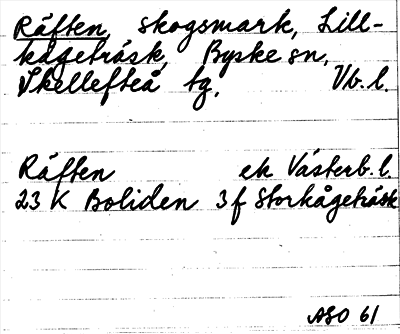 Räften, skogsmark, Lill-
kågeträsk, Byske sn,
Skellefteå tg, Vb. l.
Räften ek Västerb. l.
23 K Boliden 3 f Storkågeträsk
ASO 61